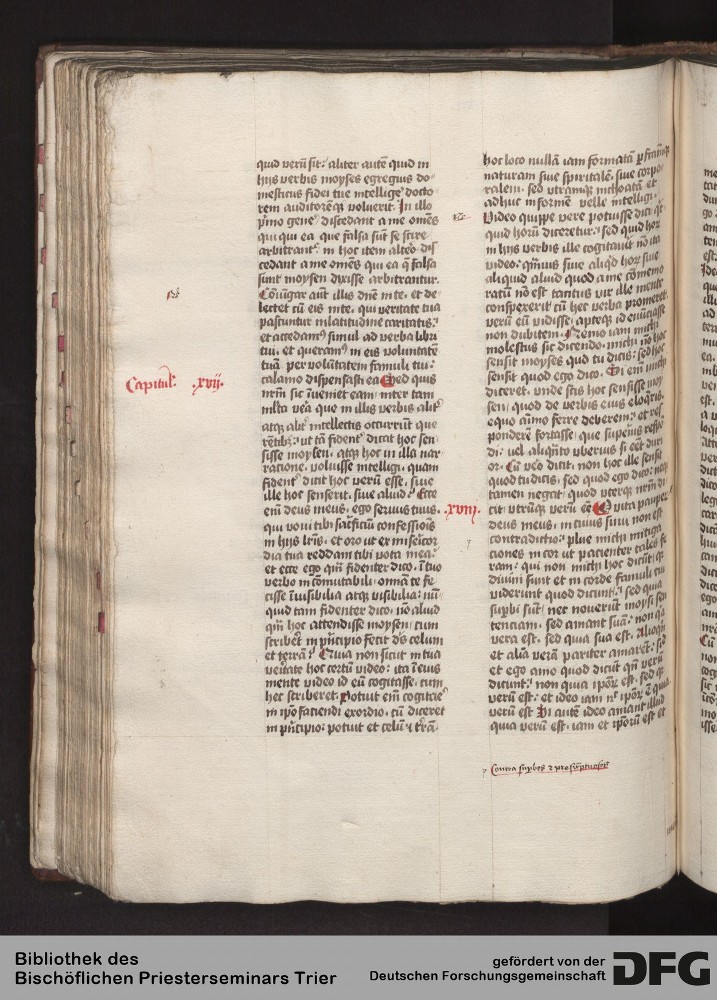 quid verū sit: aliter autē quid in
hijs verbis moyses egregius do
mesticus fidei tue intellige docto
rem auditorēq voluerit. In illo
pmo gene discedant a me omēs
qui qui ea que falsa sūt se scire
arbitrant: in hoc item altero dis
cedant a me omēs qui ea q falsa
sunt moysen dixisse arbitrantur.
Coniūgar aūt illis dnē in te. et de
lectet cū eis in te. qui veritate tua
pascuntur in latitudine caritatis:
et accedam simul ad verba libri
tui. et queram in eis voluntatē
tuā per volūtatem famuli tui.
calamo dispensasti ea Sed quis
nrm sic inueniet eam. inter tam
mlta vera que in illis verbis alit
atqz alit intellectis occurrūt que
rētibz. ut tā fident dicat hoc sen
sisse moysen. atqz hoc in illa nar
ratione. voluisse intelligi. quam
fident dicit hoc verū esse. siue
ille hoc senserit. siue aliud. Ecce
em deus meus. ego seruus tuus.
qui voui tibi sacrificiū confessiois
in hijs lris. et oro ut ex misericor
dia tua reddam tibi vota mea:
et ecce ego qm fidenter dico. ī tuo
verbo incōmutabili. omnia te fe
cisse īuisibilia atqz visibilia: nū
quid tam fidenter dico. nō aliud
qm hoc attendisse moysen. cum
scriberet in principio fecit ds celum
et terrā: Quia non sicut in tua
veritate hoc certū video: ita ī eius
mente video id eū cogitasse. cum
hec scriberet. Potuit em cogitare
in ipo faciendi exordio. cū diceret
in principio: potuit et celū et terrā.
Capitul. .xvij.
hoc loco nullā iam formatā perfectamqz
naturam siue spiritalē. siue corpo
ralem. sed vtramqz inchoatā et
adhuc informē velle intelligi.
Video quippe vere potuisse dici qt
quid horū diceretur: sed quid horū
in hijs verbis ille cogitauit nō ita
video: quāuis siue aliqd horū siue
aliquid aliud quod a me cōmemo
ratū nō est tantus vir ille mente
conspexerit cū hec verba promeret
verū eū vidisse. apteqz id enūciasse
non dubitem. Nemo iam michi
molestus sic dicendo. michi nō hoc
sensit moyses qud tu dicis: sed hoc
sensit quod ego dico. Si em michi
diceret. vnde scis hoc sensisse moy
sen. quod de verbis eius eloqris.
equo aīmo ferre deberem: et res
ponderē fortasse. que superius respo
di: vel aliqnto vberius si eēt duri
or. Cū vero dicit. non hoc ille sensit
quod tu dicis. sed quod ego dico: neqz
tamen negat. quod vterqz nrm di
cit vtrūqz verū eē O vita pauperū
deus meus. in cuius sinu non est
contradictio: plue michi mitiga
ciones in cor ut pacienter tales fe
ram: qui non michi hoc dicūt qz
diuini sunt et in corde famuli tui
viderunt quod dicunt: sed quia
supbi sūt. nec nouerūt moysi sen
tenciam. sed amant suā: non qa
vera est. sed quia sua est. Alioqn
et aliā verā pariter amarēt: sicut
et ego amo quod dicūt qn verū
dicunt: non quia ipor est. sed qz
verū est: et ideo iam nec ipor ē quia
verū est Si autē ideo amant illud
quia verū est. iam et iporū est et
.xviij.
Contra supbos et presūptuosos
Bibliothek des
Bischöflichen Priesterseminars Trier
gefördert von der
Deutschen Forschungsgemeinschaft
DFG